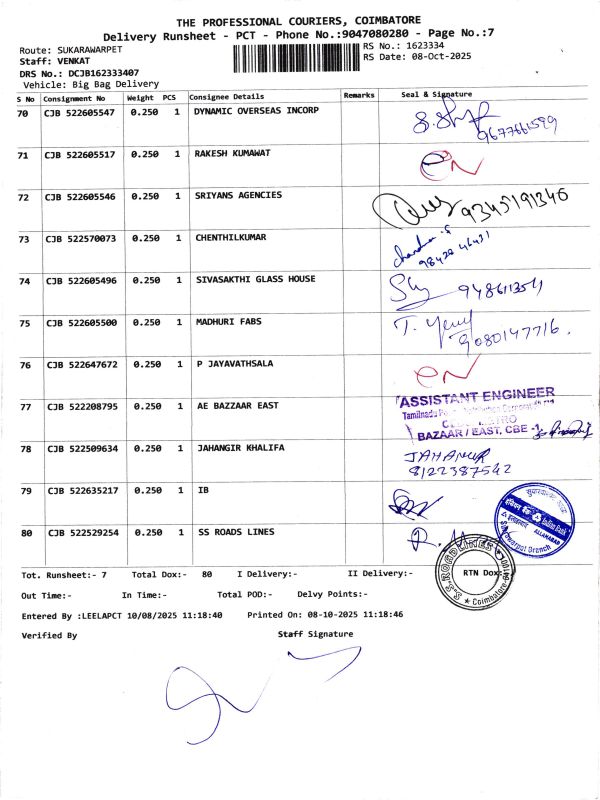 THE PROFESSIONAL COURIERS, COIMBATORE
Delivery Runsheet - PCT - Phone No.:9047080280 - Page No.:7
Route: SUKARAWARPET
RS No.: 1623334
Staff: VENKAT
RS Date: 08-Oct-2025
DRS No.: DCJB162333407
Vehicle: Big Bag Delivery
S No Consignment No Weight PCS Consignee Details Remarks Seal & Signature
70 CJB 522605547 0.250 1 DYNAMIC OVERSEAS INCORP
9677661599
71 CJB 522605517 0.250 1 RAKESH KUMAWAT
72 CJB 522605546 0.250 1 SRIYANS AGENCIES
9345191346
73 CJB 522570073 0.250 1 CHENTHILKUMAR
74 CJB 522605496 0.250 1 SIVASAKTHI GLASS HOUSE
75 CJB 522605500 0.250 1 MADHURI FABS
9080147716.
76 CJB 522647672 0.250 1 P JAYAVATHSALA
77 CJB 522208795 0.250 1 AE BAZZAAR EAST
ASSISTANT ENGINEER
BAZAAR / EAST, CBE -1
78 CJB 522509634 0.250 1 JAHANGIR KHALIFA
8122387542
79 CJB 522635217 0.250 1 IB
ALLAHABAD
80 CJB 522529254 0.250 1 SS ROADS LINES
S.S.ROADLINES
Coimbatore
Tot. Runsheet:- 7 Total Dox:- 80 I Delivery:- II Delivery:- RTN Dox:
Out Time:- In Time:- Total POD:- Delvy Points:-
Entered By :LEELAPCT 10/08/2025 11:18:40 Printed On: 08-10-2025 11:18:46
Verified By Staff Signature